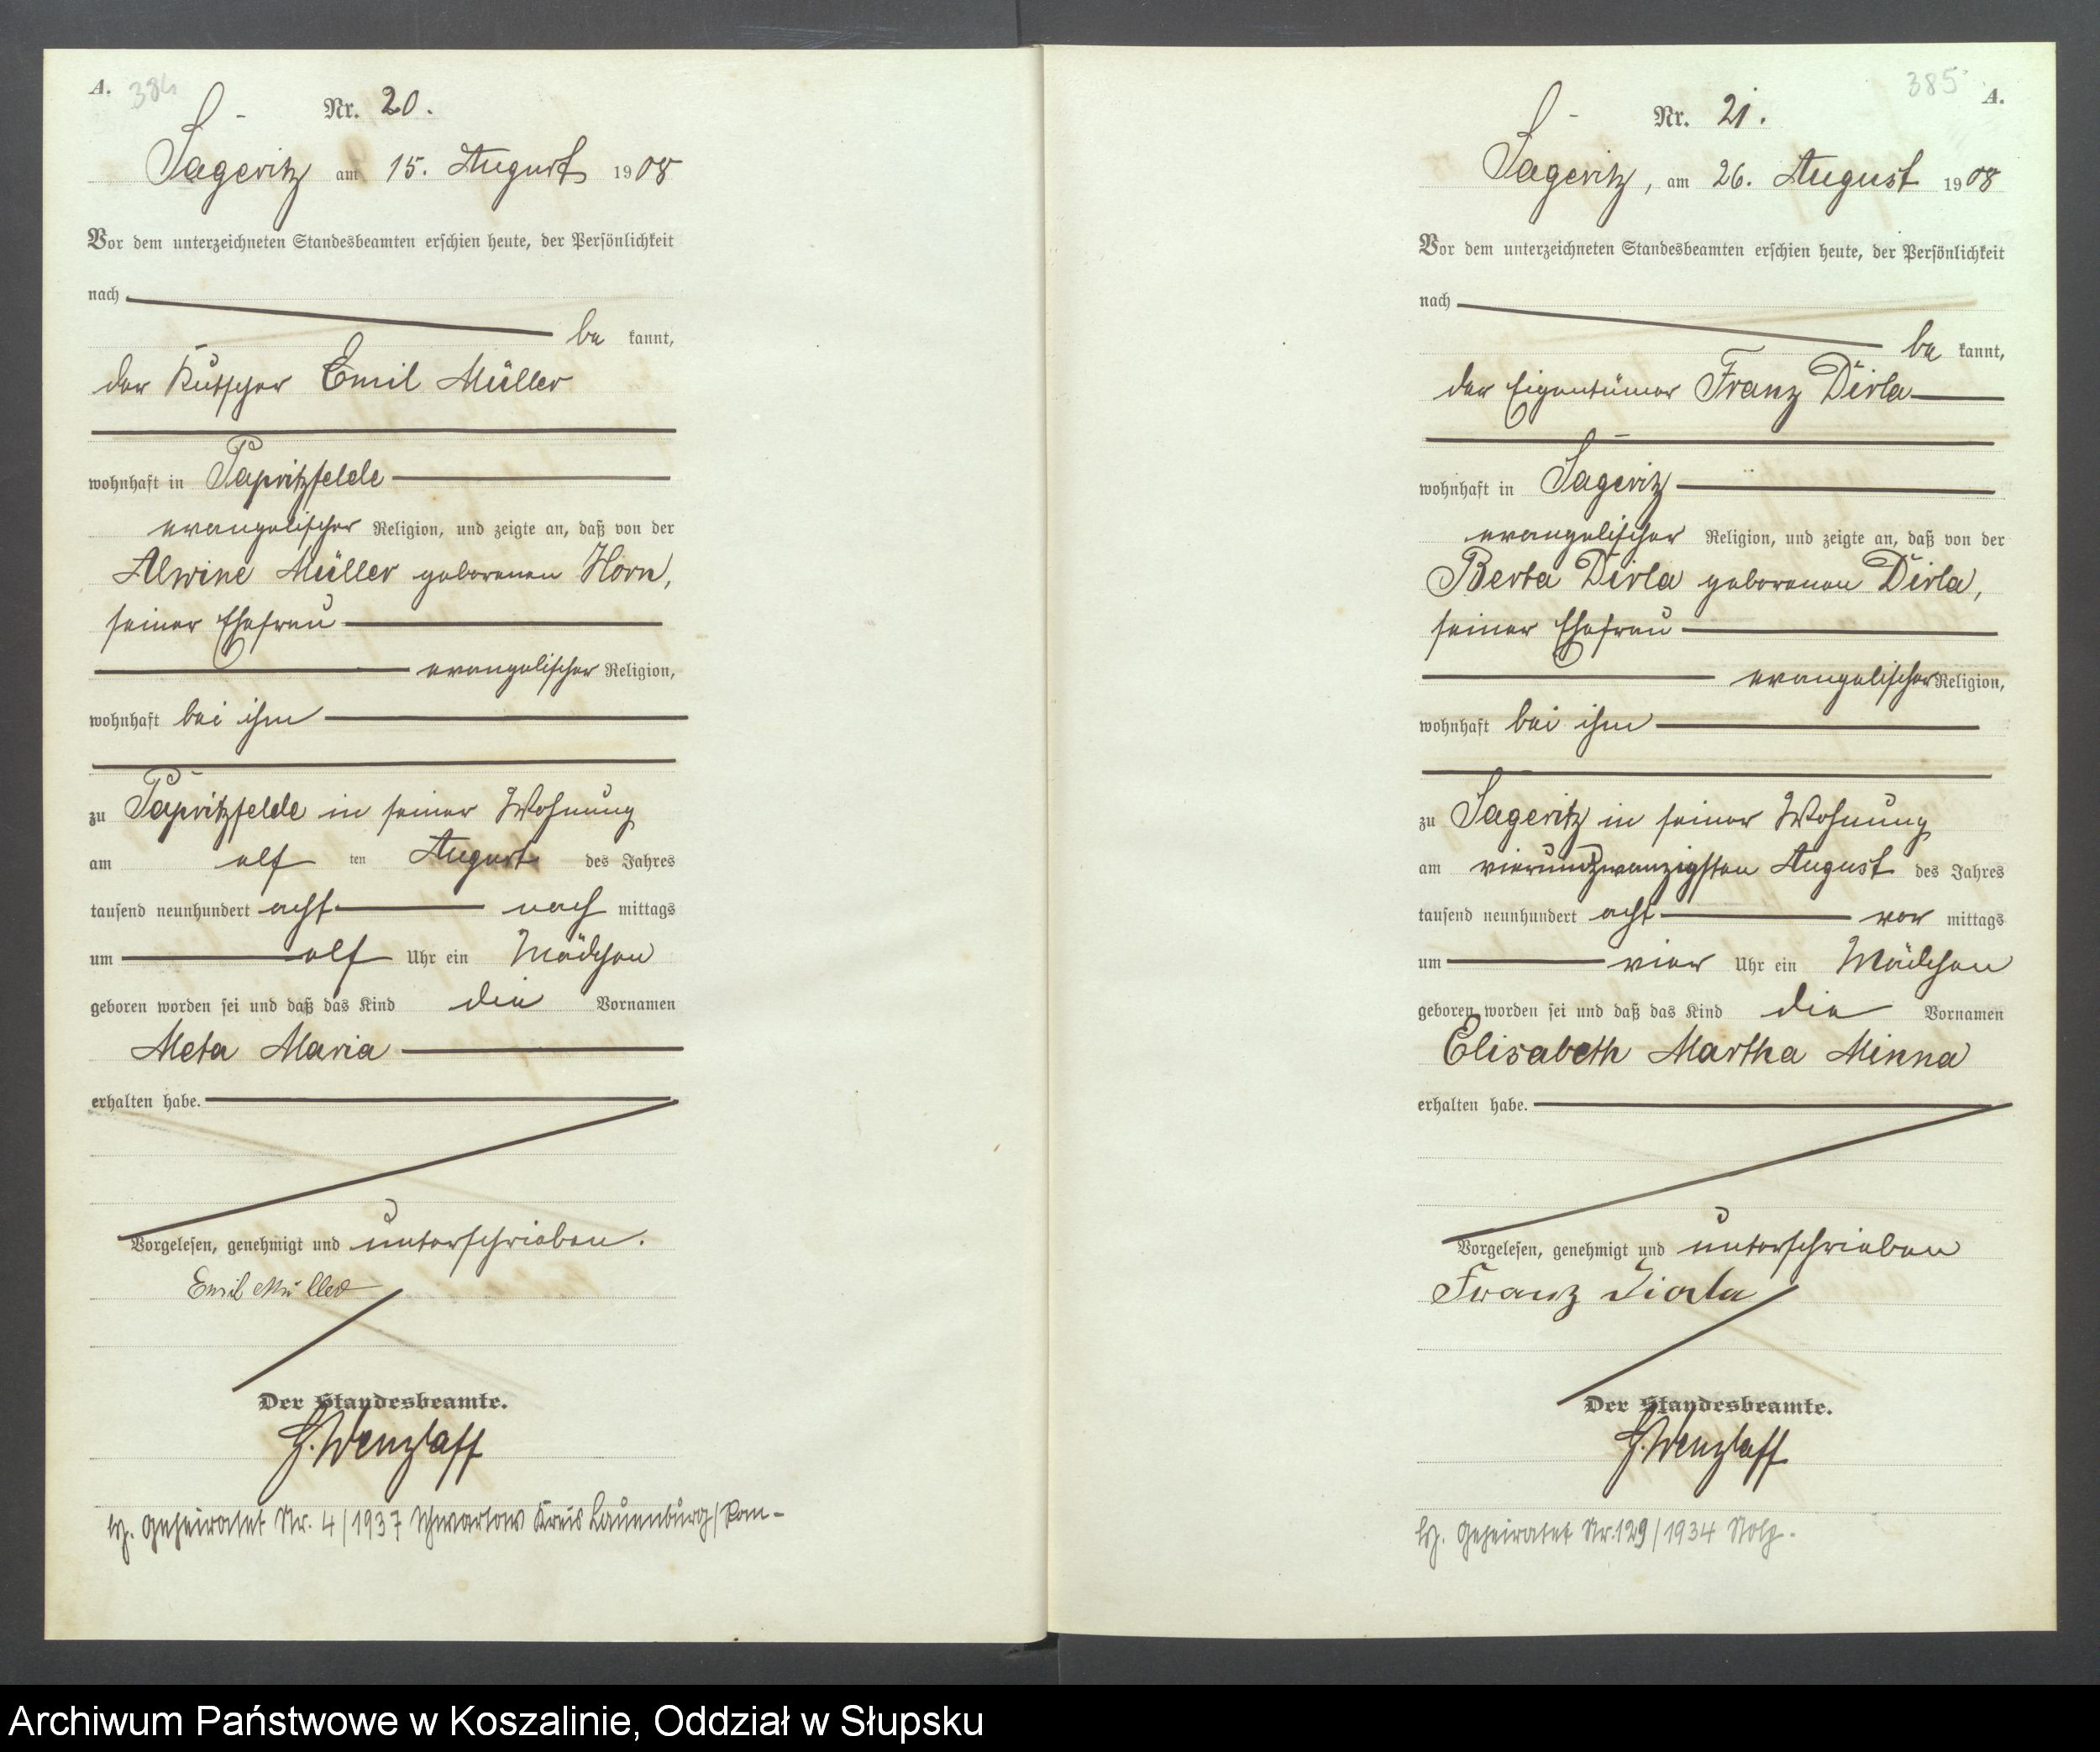 A. 384
Nr. 20.
Sageritz am 15. August 1908
Vor dem unterzeichneten Standesbeamten erschien heute, der Persönlichkeit
nach
be kannt,
der Kutscher Emil Müller
wohnhaft in Papritzfelde
evangelischer Religion, und zeigte an, daß von der
Alwine Müller geborenen Horn,
seiner Ehefrau
evangelischer Religion,
wohnhaft bei ihm
zu Papritzfelde in seiner Wohnung
am elf ten August des Jahres
tausend neunhundert acht nach mittags
um elf Uhr ein Mädchen
geboren worden sei und daß das Kind die Vornamen
Meta Maria
erhalten habe.
Vorgelesen, genehmigt und unterschrieben.
Emil Müller
Der Standesbeamte.
G. Wenzlaff
Geheiratet Nr. 4/1937 Schwartow Kreis Lauenburg/Pom-
385 A.
Nr. 21.
Sageritz, am 26. August 1908
Vor dem unterzeichneten Standesbeamten erschien heute, der Persönlichkeit
nach
be kannt,
der Eigentümer Franz Dirla
wohnhaft in Sageritz
evangelischer Religion, und zeigte an, daß von der
Berta Dirla geborenen Dirla,
seiner Ehefrau
evangelischer Religion,
wohnhaft bei ihm
zu Sageritz in seiner Wohnung
am vierundzwanzigsten August des Jahres
tausend neunhundert acht vor mittags
um vier Uhr ein Mädchen
geboren worden sei und daß das Kind die Vornamen
Elisabeth Martha Minna
erhalten habe.
Vorgelesen, genehmigt und unterschrieben
Franz Dirla
Der Standesbeamte.
G. Wenzlaff
Geheiratet Nr. 129/1934 Stolp.
Archiwum Państwowe w Koszalinie, Oddział w Słupsku